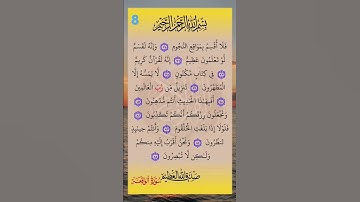 8
بِسْمِ اللهِ الرَّحْمٰنِ الرَّحِيْمِ
فَلَا أُقْسِمُ بِمَوَاقِعِ النُّجُومِ وَإِنَّهُ لَقَسَمٌ
لَّوْ تَعْلَمُونَ عَظِيمٌ إِنَّهُ لَقُرْآنٌ كَرِيمٌ
فِي كِتَابٍ مَّكْنُونٍ لَّا يَمَسُّهُ إِلَّا
الْمُطَهَّرُونَ تَنزِيلٌ مِّن رَّبِّ الْعَالَمِينَ
أَفَبِهَٰذَا الْحَدِيثِ أَنتُم مُّدْهِنُونَ
وَتَجْعَلُونَ رِزْقَكُمْ أَنَّكُمْ تُكَذِّبُونَ
فَلَوْلَا إِذَا بَلَغَتِ الْحُلْقُومَ وَأَنتُمْ حِينَئِذٍ
تَنظُرُونَ وَنَحْنُ أَقْرَبُ إِلَيْهِ مِنكُمْ
وَلَٰكِن لَّا تُبْصِرُونَ
صدق الله العظيم
سورة الواقعة